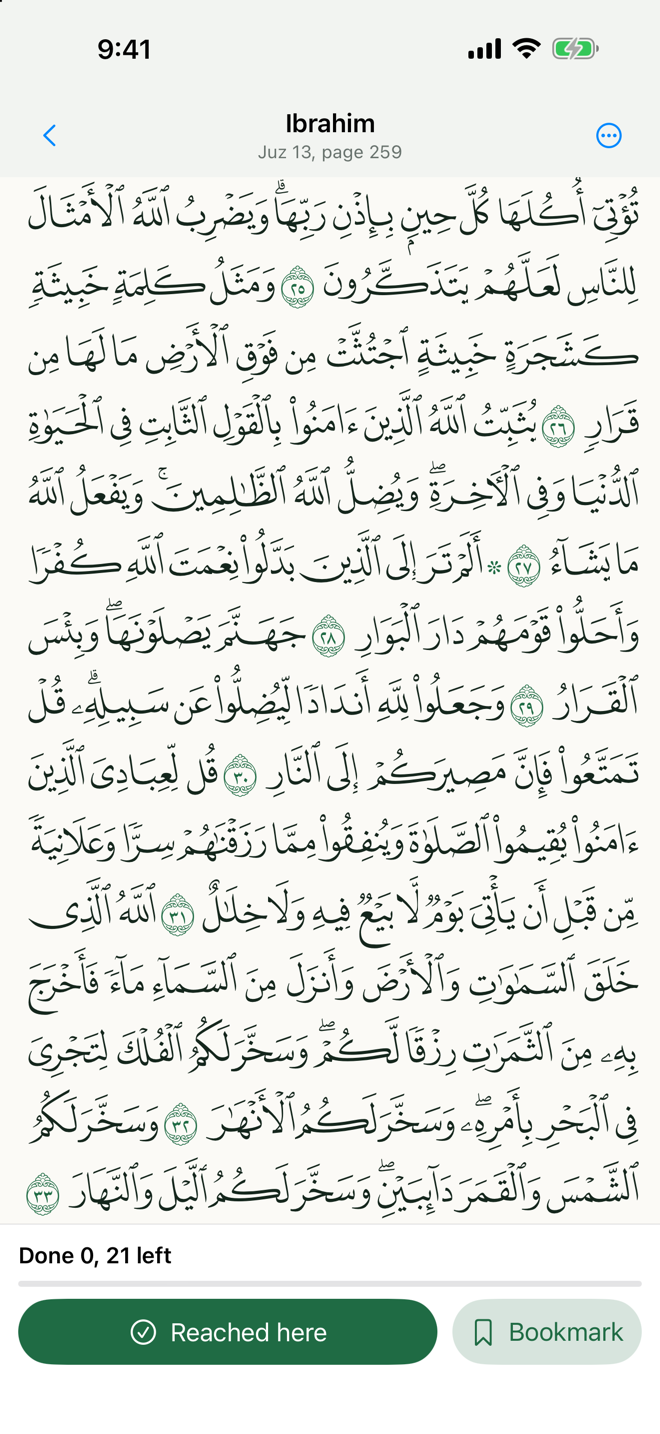 9:41
Ibrahim
Juz 13, page 259
تُؤْتِىٓ أُكُلَهَا كُلَّ حِينٍۭ بِإِذْنِ رَبِّهَاۗ وَيَضْرِبُ ٱللَّهُ ٱلْأَمْثَالَ
لِلنَّاسِ لَعَلَّهُمْ يَتَذَكَّرُونَ ٢٥ وَمَثَلُ كَلِمَةٍ خَبِيثَةٍ
كَشَجَرَةٍ خَبِيثَةٍ ٱجْتُثَّتْ مِن فَوْقِ ٱلْأَرْضِ مَا لَهَا مِن
قَرَارٍ ٢٦ يُثَبِّتُ ٱللَّهُ ٱلَّذِينَ ءَامَنُوا۟ بِٱلْقَوْلِ ٱلثَّابِتِ فِى ٱلْحَيَوٰةِ
ٱلدُّنْيَا وَفِى ٱلْـَٔاخِرَةِۖ وَيُضِلُّ ٱللَّهُ ٱلظَّـٰلِمِينَۚ وَيَفْعَلُ ٱللَّهُ
مَا يَشَآءُ ٢٧ ۞ أَلَمْ تَرَ إِلَى ٱلَّذِينَ بَدَّلُوا۟ نِعْمَتَ ٱللَّهِ كُفْرًا
وَأَحَلُّوا۟ قَوْمَهُمْ دَارَ ٱلْبَوَارِ ٢٨ جَهَنَّمَ يَصْلَوْنَهَاۖ وَبِئْسَ
ٱلْقَرَارُ ٢٩ وَجَعَلُوا۟ لِلَّهِ أَندَادًا لِّيُضِلُّوا۟ عَن سَبِيلِهِۦۗ قُلْ
تَمَتَّعُوا۟ فَإِنَّ مَصِيرَكُمْ إِلَى ٱلنَّارِ ٣٠ قُل لِّعِبَادِىَ ٱلَّذِينَ
ءَامَنُوا۟ يُقِيمُوا۟ ٱلصَّلَوٰةَ وَيُنفِقُوا۟ مِمَّا رَزَقْنَـٰهُمْ سِرًّا وَعَلَانِيَةً
مِّن قَبْلِ أَن يَأْتِىَ يَوْمٌ لَّا بَيْعٌ فِيهِ وَلَا خِلَـٰلٌ ٣١ ٱللَّهُ ٱلَّذِى
خَلَقَ ٱلسَّمَـٰوَٰتِ وَٱلْأَرْضَ وَأَنزَلَ مِنَ ٱلسَّمَآءِ مَآءً فَأَخْرَجَ
بِهِۦ مِنَ ٱلثَّمَرَٰتِ رِزْقًا لَّكُمْۖ وَسَخَّرَ لَكُمُ ٱلْفُلْكَ لِتَجْرِىَ
فِى ٱلْبَحْرِ بِأَمْرِهِۦۖ وَسَخَّرَ لَكُمُ ٱلْأَنْهَـٰرَ ٣٢ وَسَخَّرَ لَكُمُ
ٱلشَّمْسَ وَٱلْقَمَرَ دَآئِبَيْنِۖ وَسَخَّرَ لَكُمُ ٱلَّيْلَ وَٱلنَّهَارَ ٣٣
Done 0, 21 left
Reached here
Bookmark